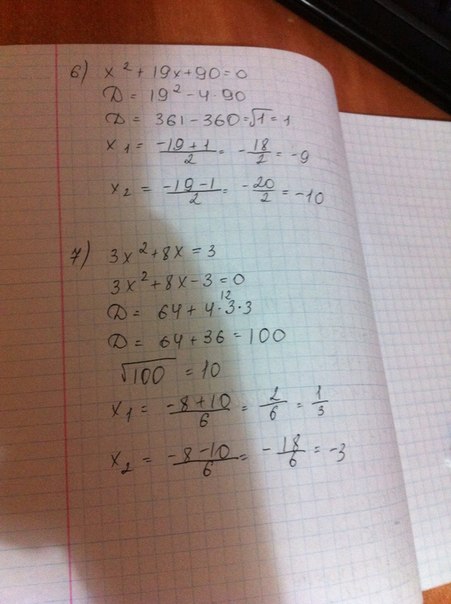 6) x² + 19x + 90 = 0
D = 19² - 4·90
D = 361 - 360 = √1 = 1
x₁ = (-19+1)/2 = -18/2 = -9
x₂ = (-19-1)/2 = -20/2 = -10
7) 3x² + 8x = 3
3x² + 8x - 3 = 0
12
D = 64 + 4·3·3
D = 64 + 36 = 100
√100 = 10
x₁ = (-8+10)/6 = 2/6 = 1/3
x₂ = (-8-10)/6 = -18/6 = -3